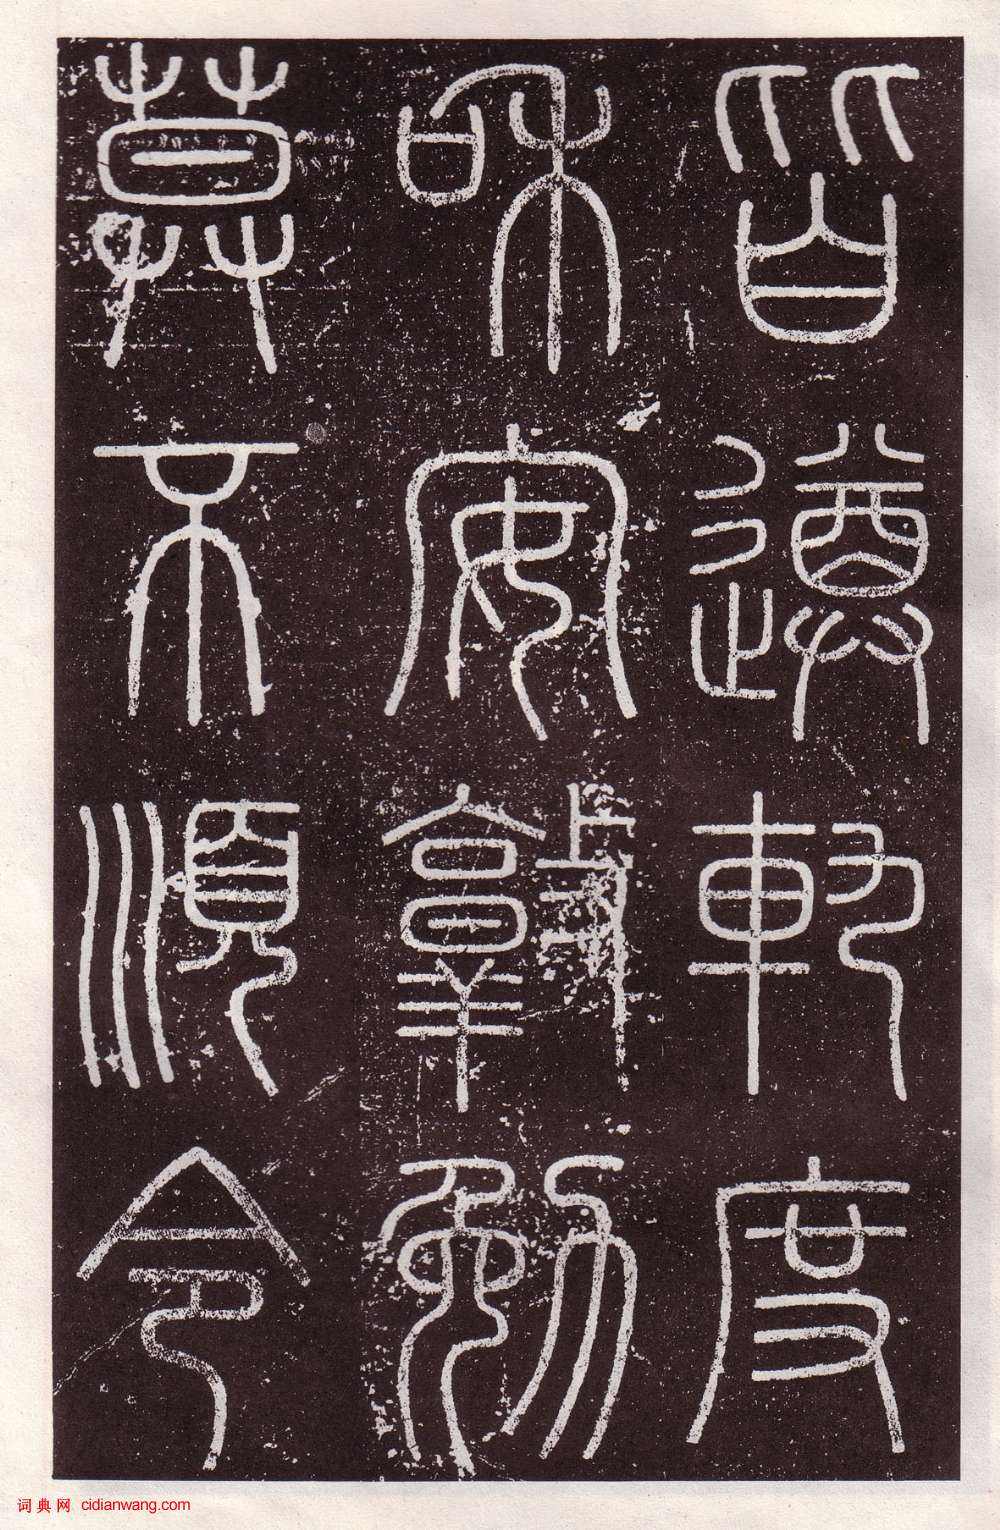 皆遵軌度
和安敦勉
莫不順令
词典网 cidianwang.com